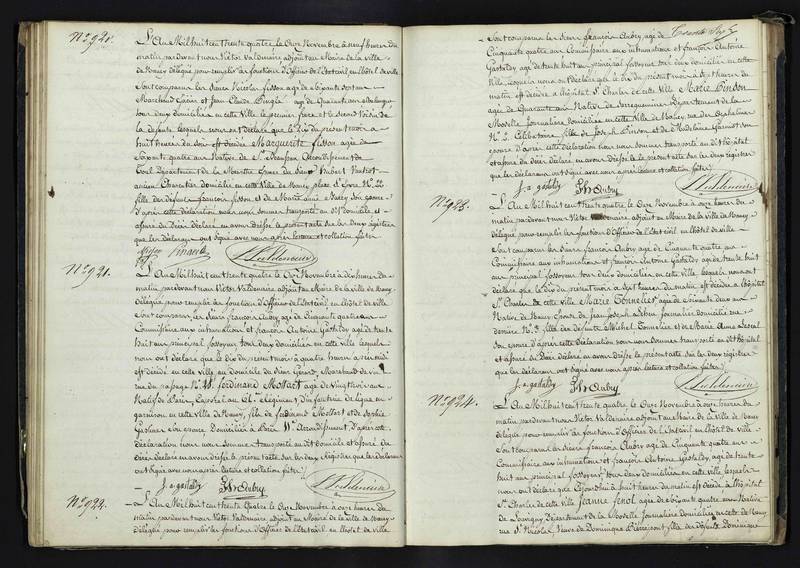 N.º 920.
L'An Mil huit cent trente quatre le Onze Novembre à neuf heures du
matin pardevant nous Victor Valdenaire adjoint au Maire de la ville
de Nancy délégué pour remplir les fonctions d'Officier de l'Etat civil en l'hôtel de ville
Sont comparus les sieurs Nicolas Fisson agé de Soixante sept ans
Marchand et Jean Claude agé de Quarante ans
tous deux domiciliés en cette ville le premier frère et le second Voisin de
la défunte lesquels nous ont déclaré que le Dix du présent mois à
huit heures du soir est décédée Marguerite Fisson agée de
Soixante quatre ans Native de Arrondissement de
Toul Département de la Meurthe Epouse du sieur Hubert
ancien Charcutier domiciliée en cette ville de Nancy place N.º
fille des défunts françois fisson et de Marie anne son épouse
D'après cette déclaration nous nous sommes transporté au dit domicile et
assuré du Décès déclaré en avons dressé le présent acte sur les deux registres
que les déclarants ont signé avec nous après lecture et collation faites
N.º 921.
L'An Mil huit cent trente quatre le Onze Novembre à dix heures du
matin pardevant nous Victor Valdenaire adjoint au Maire de la ville de Nancy
délégué pour remplir les fonctions d'Officier de l'Etat civil en l'hôtel de ville
Sont comparus les sieurs françois Aubry agé de Cinquante quatre ans
Commissaire aux inhumations et françois Antoine Gastaldy agé de trente
huit ans principal fossoyeur tous deux domiciliés en cette ville lesquels
nous ont déclaré que le Dix du présent mois à quatre heures
est décédé en cette ville au domicile du sieur Gérard, Marchand de vin
rue du passage N.º ferdinand Mossart agé de Vingt trois ans
Natif de Paris, Caporal au Régiment d'infanterie de ligne en
garnison en cette ville de Nancy, fils de ferdinand Mossart et de Sophie
son épouse domiciliés à Paris 11e Arrondissement, D'après cette
déclaration nous nous sommes transporté au dit domicile et assuré du
Décès déclaré en avons dressé le présent acte sur les deux registres que les déclarants
ont signé avec nous après lecture et collation faites
J. a gastaldy Aubry Valdenaire
N.º 922.
L'An Mil huit cent trente quatre le Onze Novembre à onze heures du
matin pardevant nous Victor Valdenaire adjoint au Maire de la ville de Nancy
délégué pour remplir les fonctions d'Officier de l'Etat civil en l'hôtel de ville
Sont comparus les sieurs françois Aubry agé de
Cinquante quatre ans Commissaire aux inhumations et françois Antoine
Gastaldy agé de trente huit ans principal fossoyeur tous deux domiciliés en cette
Ville, lesquels nous ont déclaré que le Dix du présent mois à Sept heures du
matin est décédée à l'hôpital St Charles de cette ville Marie Pinson
agée de Quarante ans Native de Sarreguemines Département de la
Moselle Journalière domiciliée en cette ville de Nancy, rue des
N.º 2. Célibataire fille de Joseph Pinson et de Madelaine son
épouse d'après cette déclaration nous nous sommes transporté au dit hôpital
et assuré du Décès déclaré en avons dressé le présent acte sur les deux registres
que les déclarants ont signé avec nous après lecture et collation faites
J. a gastaldy Aubry Valdenaire
N.º 923.
L'An Mil huit cent trente quatre le Onze Novembre à onze heures du
matin pardevant nous Victor Valdenaire adjoint au Maire de la ville de Nancy
délégué pour remplir les fonctions d'Officier de l'Etat civil en l'hôtel de ville
Sont comparus les sieurs françois Aubry agé de Cinquante quatre ans
Commissaire aux inhumations et françois Antoine Gastaldy agé de trente huit
ans principal fossoyeur tous deux domiciliés en cette ville, lesquels nous ont
déclaré que le Dix du présent mois à Sept heures du matin est décédée à l'hôpital
St Charles de cette ville Marie Tonnelier, agée de Soixante deux ans
Native de Nancy Epouse de Jean Joseph domiciliée rue
derrière N.º 3. fille des défunts Michel Tonnelier et de Marie Anne
son épouse d'après cette déclaration nous nous sommes transporté au dit hôpital
et assuré du Décès déclaré en avons dressé le présent acte sur les deux registres
que les déclarants ont signé avec nous après lecture et collation faites
J. a gastaldy Aubry Valdenaire
N.º 924.
L'An Mil huit cent trente quatre le Onze Novembre à onze heures du
matin pardevant nous Victor Valdenaire adjoint au Maire de la ville de Nancy
délégué pour remplir les fonctions d'Officier de l'Etat civil en l'hôtel de ville
Sont comparus les sieurs françois Aubry agé de Cinquante quatre ans
Commissaire aux inhumations et françois Antoine Gastaldy agé de trente
huit ans principal fossoyeur, tous deux domiciliés en cette ville lesquels
nous ont déclaré que Cejourd'hui à huit heures du matin est décédée à l'hôpital
St Charles de cette ville Jeanne fenol agée de Soixante quatre ans Native
de Département de la Moselle Journalière domiciliée en cette ville de Nancy
rue St Nicolas, Veuve de Dominique fille des défunts Dominique